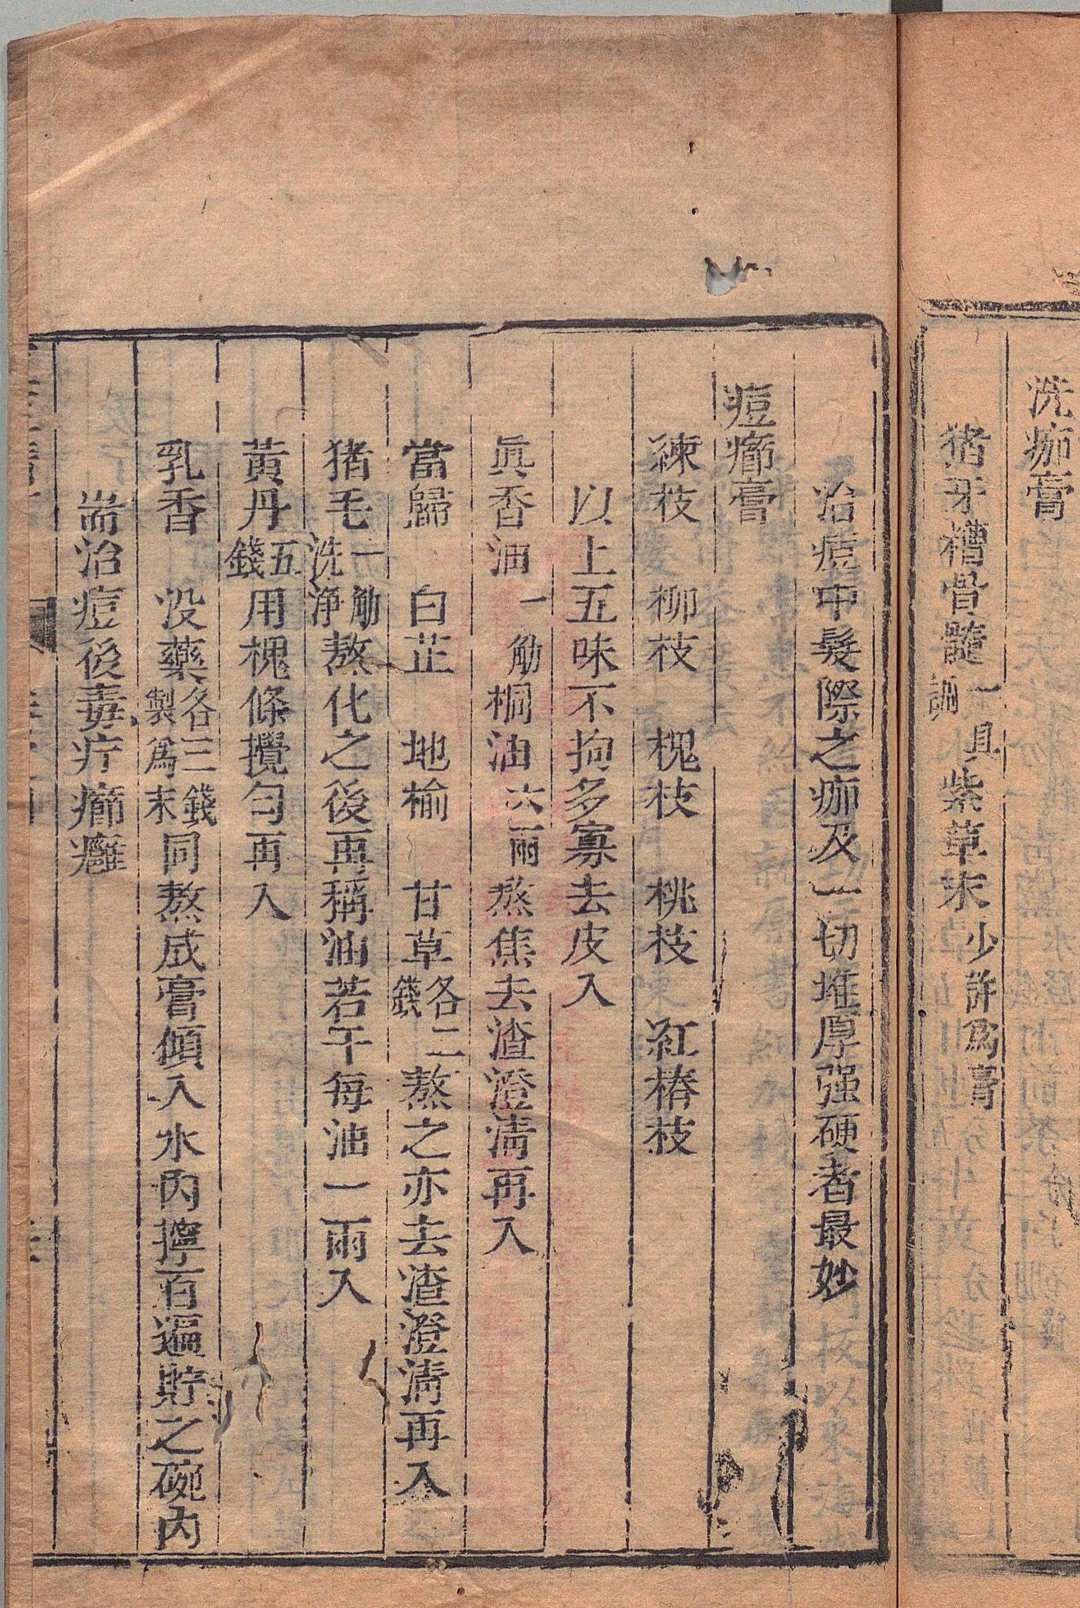 洗痂膏
猪牙槽骨髓一具紫草末少許為膏調
治痘中髮際之痂及一切堆厚强硬者最妙
痘癤膏
練枝 柳枝 槐枝 桃枝 紅椿枝
以上五味不拘多寡去皮入
眞香油一觔桐油六兩熬焦去渣澄淸再入
當歸 白芷 地榆 甘草各二錢熬之亦去渣澄淸再入
猪毛一觔洗淨熬化之後再稱油若干每油一兩入
黃丹五錢用槐條攪勻再入
乳香 沒藥各三錢製爲末同熬成膏傾入水內擰百遍貯之碗內
耑治痘後毒疔癤癰